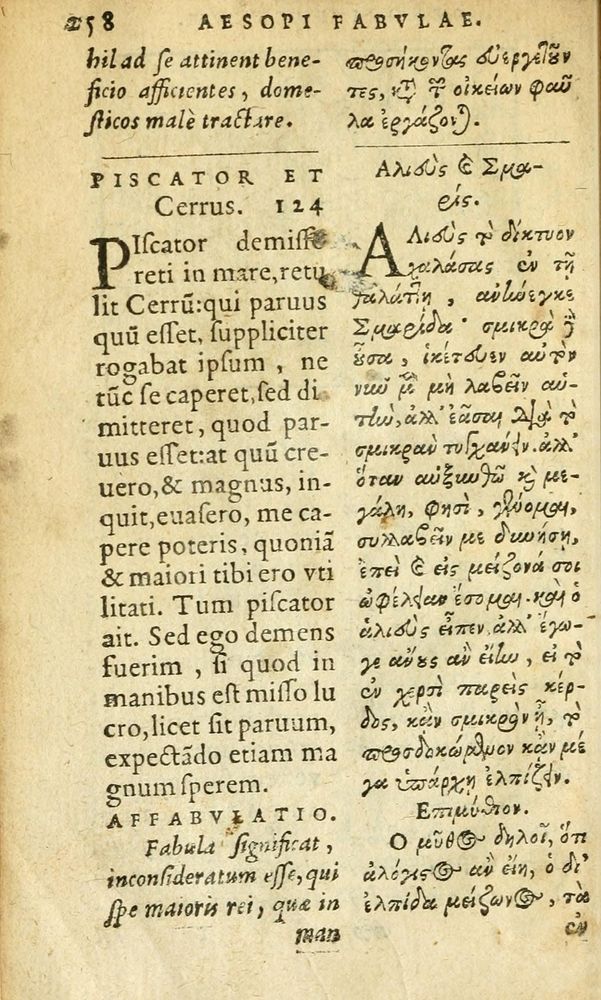 258 AESOPI FABVLAE.
hil ad se attinent bene-
ficio afficientes, dome-
sticos malè tractare.
PISCATOR ET
Cerrus. 124
PIscator demisso
reti in mare, retu
lit Cerrũ: qui paruus
quũ esset, suppliciter
rogabat ipsum, ne
tũc se caperet, sed di
mitteret, quod par-
uus esset: at quũ cre-
uero, & magnus, in-
quit, euasero, me ca-
pere poteris, quoniã
& maiori tibi ero vti
litati. Tum piscator
ait. Sed ego demens
fuerim, si quod in
manibus est misso lu
cro, licet sit paruum,
expectãdo etiam ma
gnum sperem.
AFFABVLATIO.
Fabula significat,
inconsideratum esse, qui
spe maioris rei, quæ in
man
προσήκοντας εὐεργετοῦν
τες, καὶ τῶν οἰκείων φαῦ
λα ἐργάζονται.
Ἁλιεὺς καὶ Σμα-
ρίς.
ΑΛιεὺς τὸ δίκτυον
χαλάσας ἐν τῇ
θαλάττῃ, ἀνήνεγκε
Σμαρίδα· σμικρὰ δὲ
οὖσα, ἱκέτευεν αὐτὸν
νῦν μὲν μὴ λαβεῖν αὐ-
τὴν, ἀλλ' ἐᾶσαι διὰ τὸ
σμικρὰν τυγχάνειν. ἀλλ'
ὅταν αὐξηνθῶ καὶ με-
γάλη, φησὶ, γένομαι,
συλλαβεῖν με δυνήσῃ,
ἐπεὶ καὶ εἰς μείζονά σοι
ὠφέλειαν ἔσομαι. καὶ ὁ
ἁλιεὺς εἶπεν. ἀλλ' ἔγω-
γε ἄνους ἂν εἴην, εἰ τὸ
ἐν χερσὶ παρεὶς κέρ-
δος, κἂν σμικρὸν ᾖ, τὸ
προσδοκώμενον κἂν μέ
γα ὑπάρχῃ ἐλπίζειν.
Ἐπιμύθιον.
Ὁ μῦθος δηλοῖ, ὅτι
ἀλόγιστος ἂν εἴη, ὁ δι'
ἐλπίδα μείζονος, τὰ
ἐν